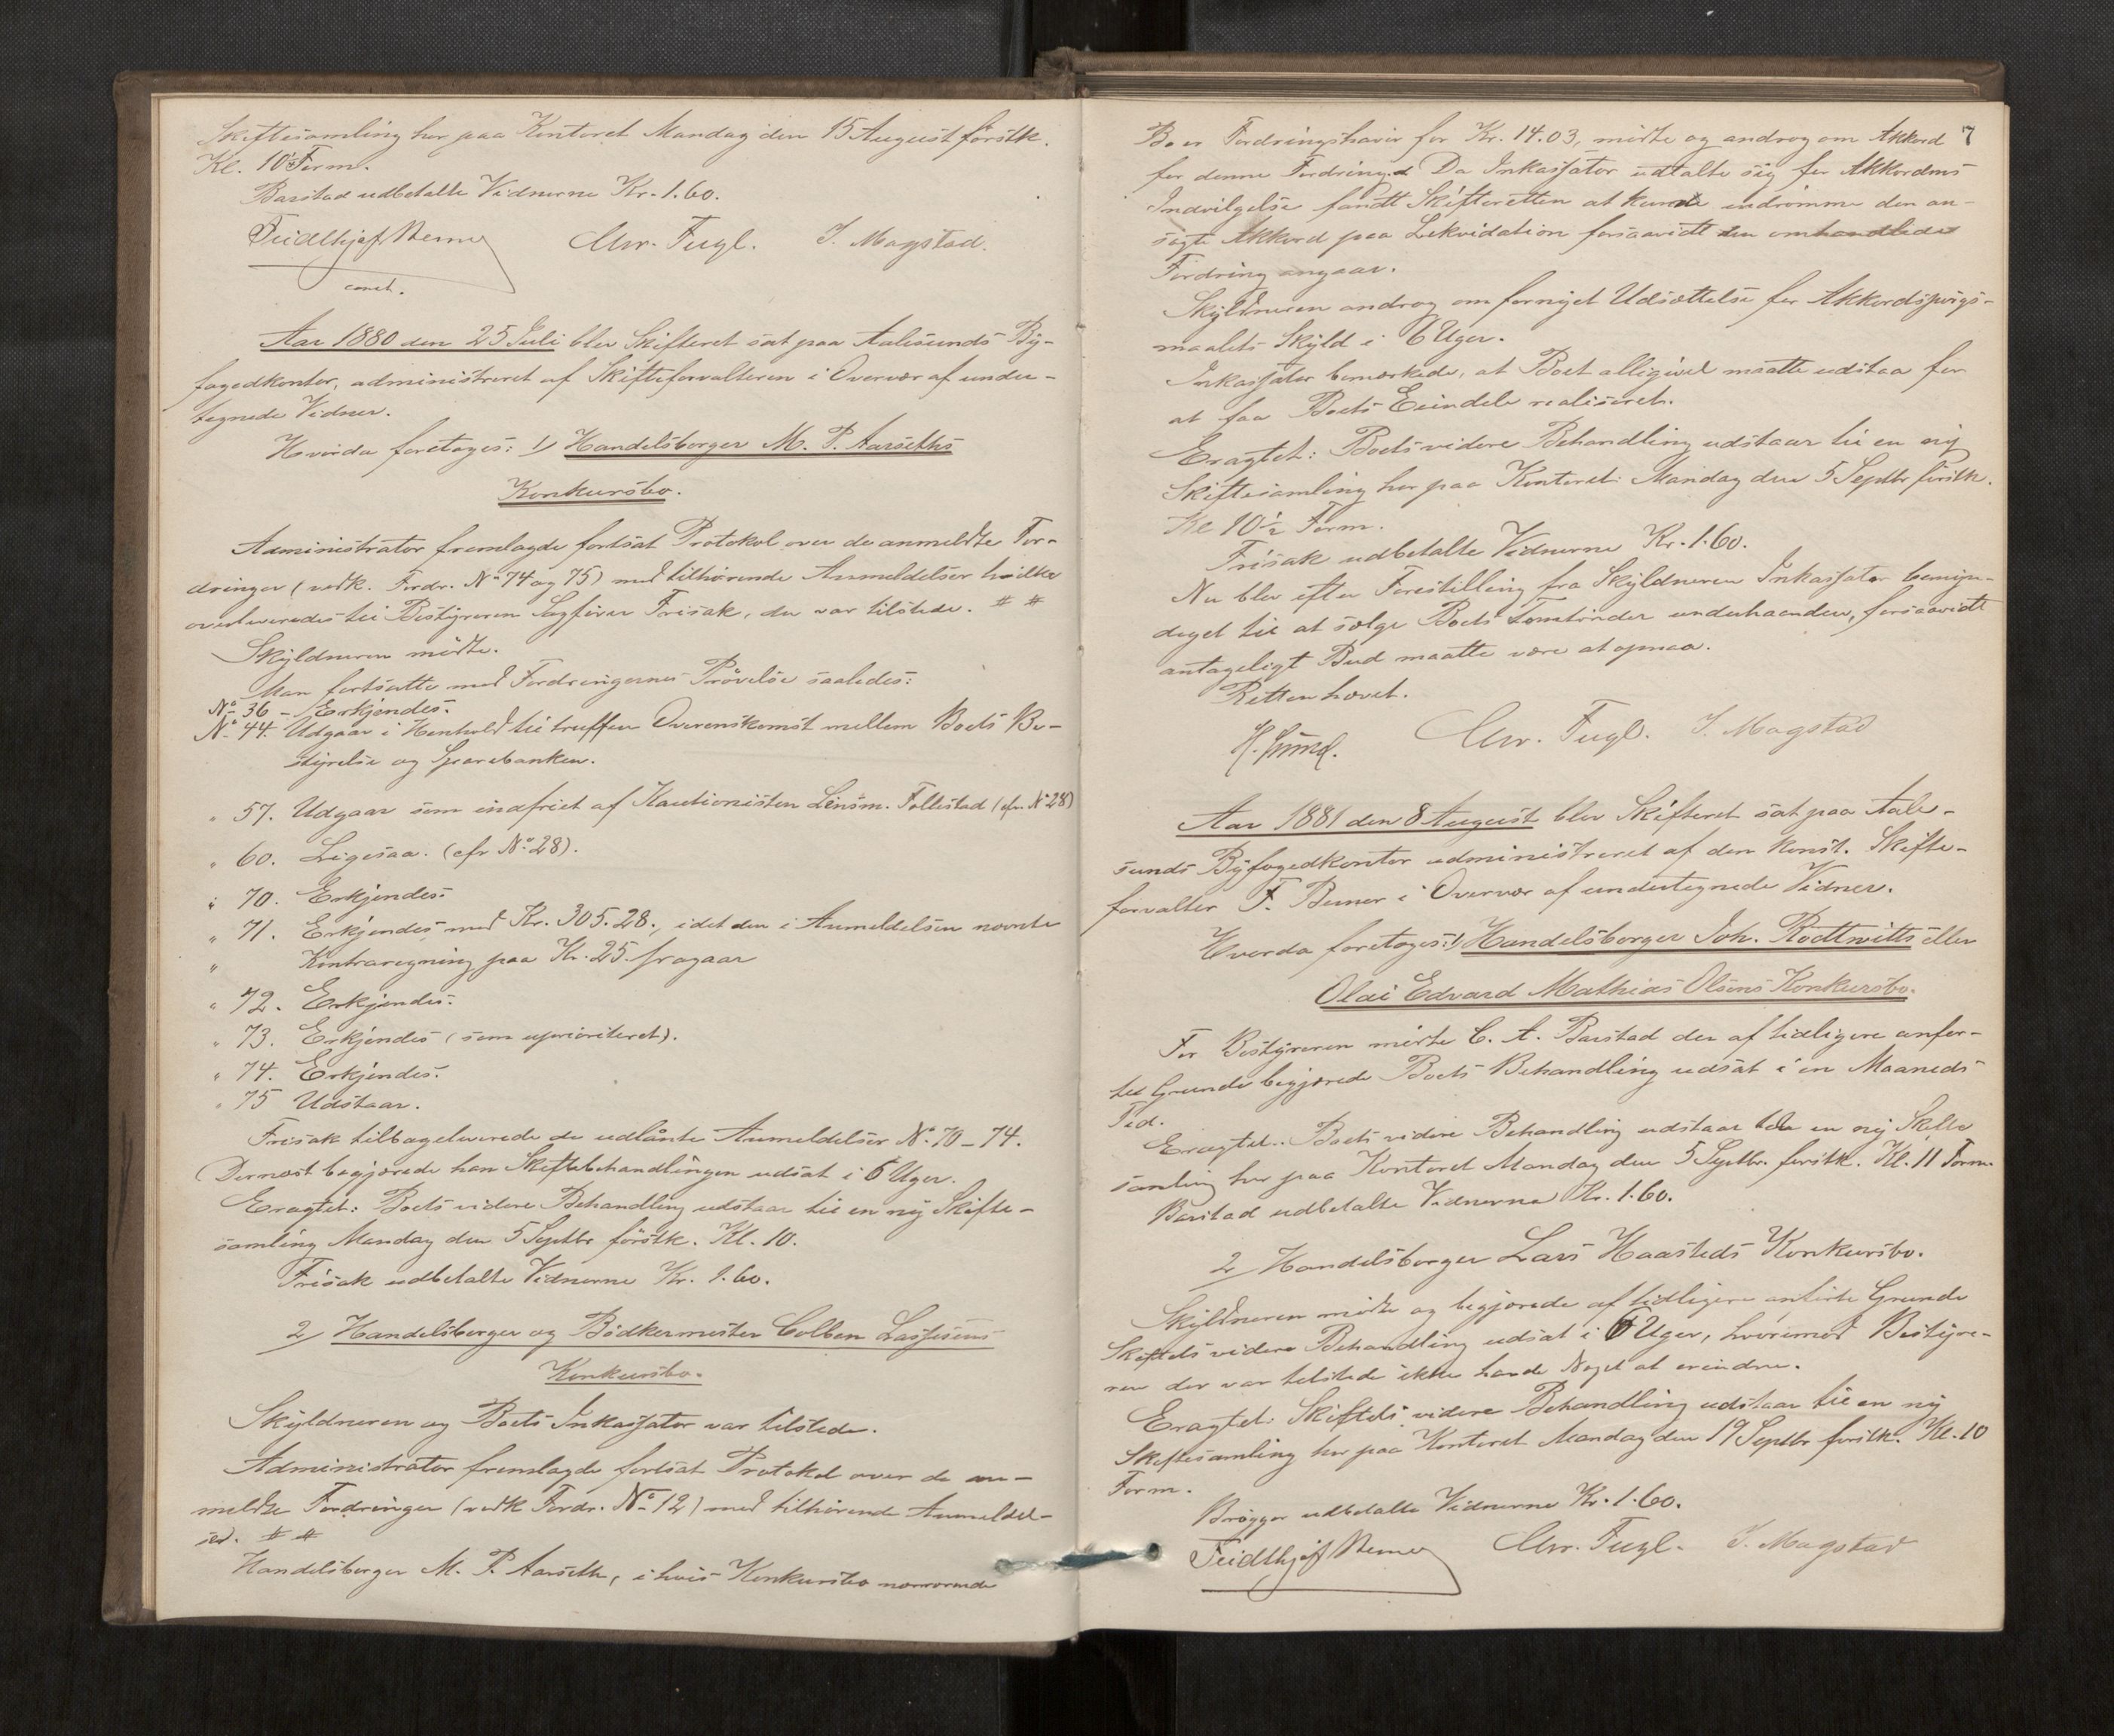 Skiftesamling her paa Kontoret Mandag den 15 August förstk.
Kl. 10½ Form.
Barstad udbetalte Vidnerne Kr. 1.60.
Fridthjof Berner Chr. Fugl. I. Magstad.
const.
Aar 1880 den 25 Juli blev Skifteret sat paa Aalesunds By-
fogedkontor, administreret af Skifteforvalteren i Overvær af under-
tegnede Vidner.
Hvorda foretoges: 1/ Handelsborger M. P. Aarseths
Konkursbo.
Administrator fremlagde fortsat Protokol over de anmeldte For-
dringer (vedk. Fordr. No 74 og 75) med tilhørende Anmeldelser hvilke
overleveredes til Bestyreren Sagfører Frisak, der var tilstede. # #
Skyldneren mødte.
Man fortsatte med Fordringernes Prövelse saaledes:
No 36 - Erkjendes.
No 44. Udgaar i Henhold til truffen Overenskomst mellem Boets Be-
styrelse og Sparebanken.
" 57. Udgaar som indfriet af Kautionisten Lensm. Follestad (cfr. No 28)
" 60. Ligesaa. (cfr No 28).
" 70. Erkjendes.
" 71. Erkjendes med Kr. 305.28., idet den i Anmeldelsen nævnte
" Kontraregning paa Kr. 25. fragaar
" 72. Erkjendes.
" 73. Erkjendes (som uprioriteret).
" 74. Erkjendes.
" 75 Udstaar.
Frisak tilbageleverede de udlånte Anmeldelser No. 70-74.
Dernæst begjærede han Skiftebehandlingen udsat i 6 Uger.
Eragtet: Boets videre Behandling udstaar til en ny Skifte-
samling Mandag den 5 Septbr. förstk. Kl. 10.
Frisak udbetalte Vidnerne Kr. 1.60.
2/ Handelsborger og Bödkermester Colben Lassesens
Konkursbo.
Skyldneren og Boets Inkassator var tilstede.
Administrator fremlagde fortsat Protokol over de an-
meldte Fordringer (vedk Fordr. No 12) med tilhørende Anmeldel-
se. # #
Handelsborger M. P. Aarseth, i hvis Konkursbo nærværende
7
Bo er Fordringshaver for Kr. 14.03, mødte og androg om Akkord
for denne Fordring. Da Inkassator udtalte sig for Akkordens
Indvilgelse fandt Skifteretten at kunde indrømme den an-
søgte Akkord paa Likvidation forsaavidt den omhandlede
Fordring angaar.
Skyldneren androg om fornyet Udsættelse for Akkordspørgs-
maalets Skyld i 6 Uger.
Inkassator bemærkede, at Boet alligevel maatte udstaa for
at faa Boets Eiendele realiseret.
Eragtet: Boets videre Behandling udstaar til en ny
Skiftesamling her paa Kontoret Mandag den 5 Septbr. förstk.
Kl 10½ Form.
Frisak udbetalte Vidnerne Kr. 1.60.
Nu blev efter Forestilling fra Skyldneren Inkassator bemyn-
diget til at sælge Boets Tomtønder underhaanden, forsaavidt
antageligt Bud maatte være at opnaa.
Retten hævet.
Chr. Fugl. I. Magstad
Aar 1881 den 8 August blev Skifteret sat paa Aale-
sunds Byfogedkontor administreret af den konst. Skifte-
forvalter F. Berner i Overvær af undertegnede Vidner.
Hvorda foretoges: 1/ Handelsborger Joh. Rödtwitts eller
Olai Edvard Mathias Olsens Konkursbo.
For Bestyreren mødte C. A. Barstad der af tidligere anfør-
te Grunde begjærede Boets Behandling udsat i en Maaneds
Tid.
Eragtet: Boets videre Behandling udstaar til en ny Skifte
samling her paa Kontoret Mandag den 5 Septbr. förstk. Kl. 11 Form.
Barstad udbetalte Vidnerne Kr. 1.60.
2/ Handelsborger Lars Haasteds Konkursbo.
Skyldneren mødte og begjærede af tidligere anførte Grunde
Skiftets videre Behandling udsat i 6 Uger, hvorimod Bestyre-
ren der var tilstede ikke havde Noget at erindre.
Eragtet: Skiftets videre Behandling udstaar til en ny
Skiftesamling her paa Kontoret Mandag den 19 Septbr förstk. Kl. 10
Form.
Brøgger udbetalte Vidnerne Kr. 1.60.
Fridthjof Berner Chr. Fugl. I. Magstad